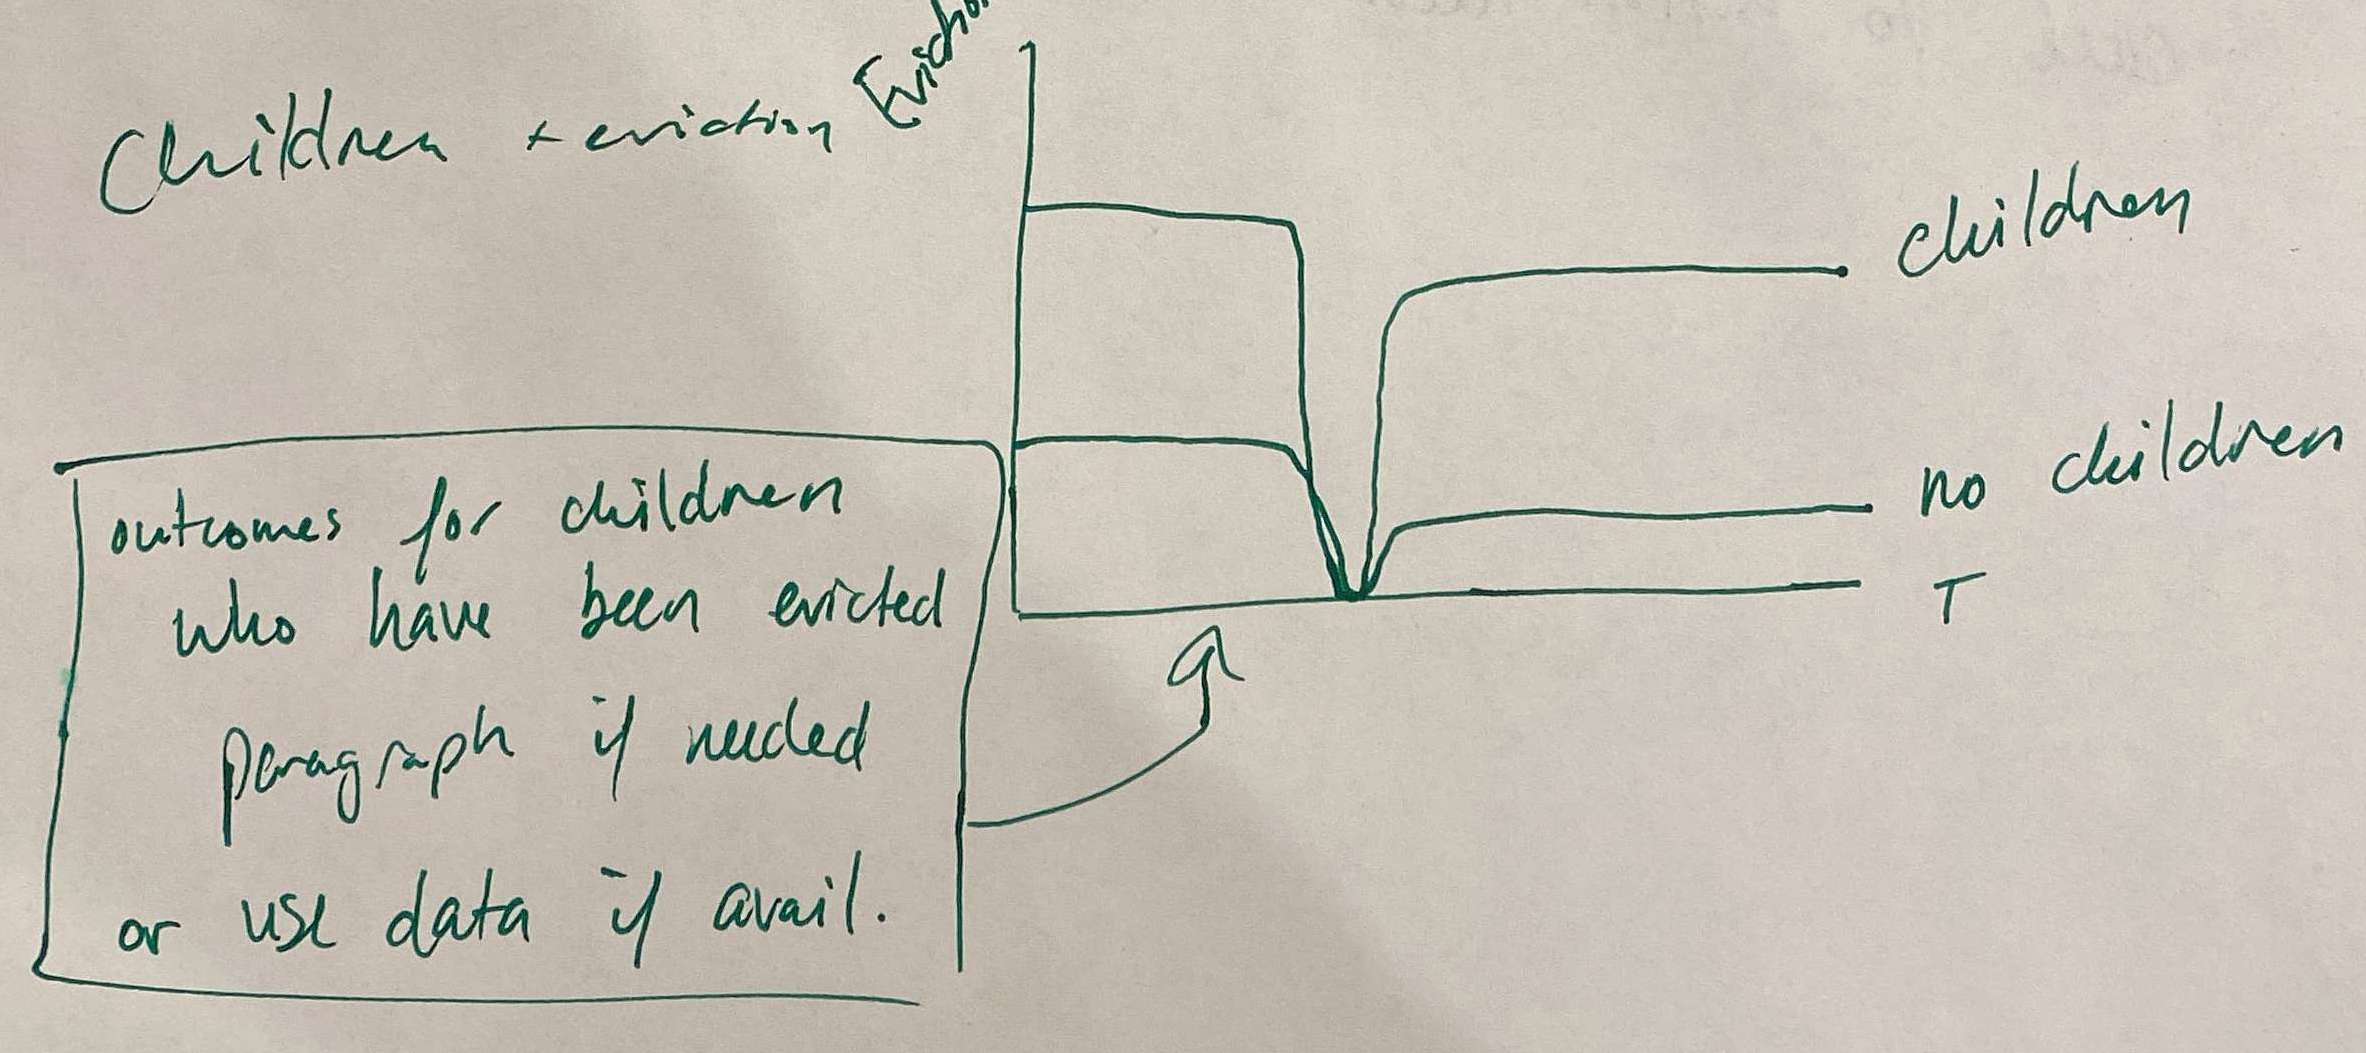 Children + eviction
Eviction
children
no children
T
outcomes for children
who have been evicted
paragraph if needed
or use data if avail.